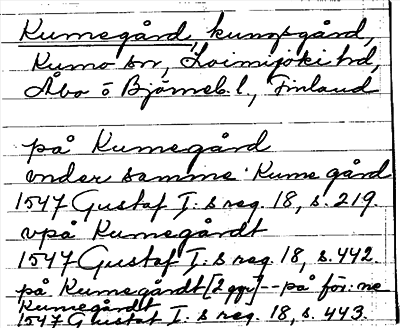 Kumegård, kungsgård,
Kumo sn, Loimijoki hd,
Åbo o Björneb. l., Finland
på Kumegård
vnder samme Kumegård
1547 Gustaf I:s reg. 18, s. 219.
vpå Kumegårdt
1547 Gustaf I:s reg. 18, s. 442.
på Kumegårdt [2 ggr] -- på för:ne
Kumegårdt
1547 Gustaf I:s reg. 18, s. 443.